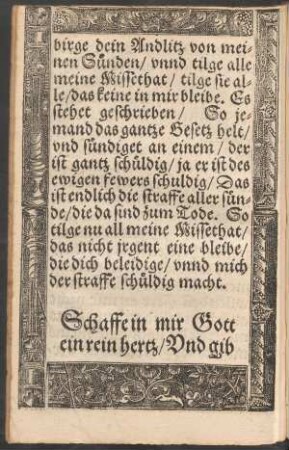 birge dein Andlitz von mei-
nen Sünden/ vnnd tilge alle
meine Missethat/ tilge sie al-
le/das keine in mir bleibe. Es
stehet geschrieben/ So je-
mand das gantze Gesetz helt/
vnd sündiget an einem/ der
ist gantz schüldig/ ja er ist des
ewigen fewers schuldig/ Das
ist endlich die straffe aller sün-
de/die da sind zum Tode. So
tilge nu all meine Missethat/
das nicht jrgent eine bleibe/
die dich beleidige/ vnnd mich
der straffe schüldig macht.
Schaffe in mir Gott
ein rein hertz/Vnd gib